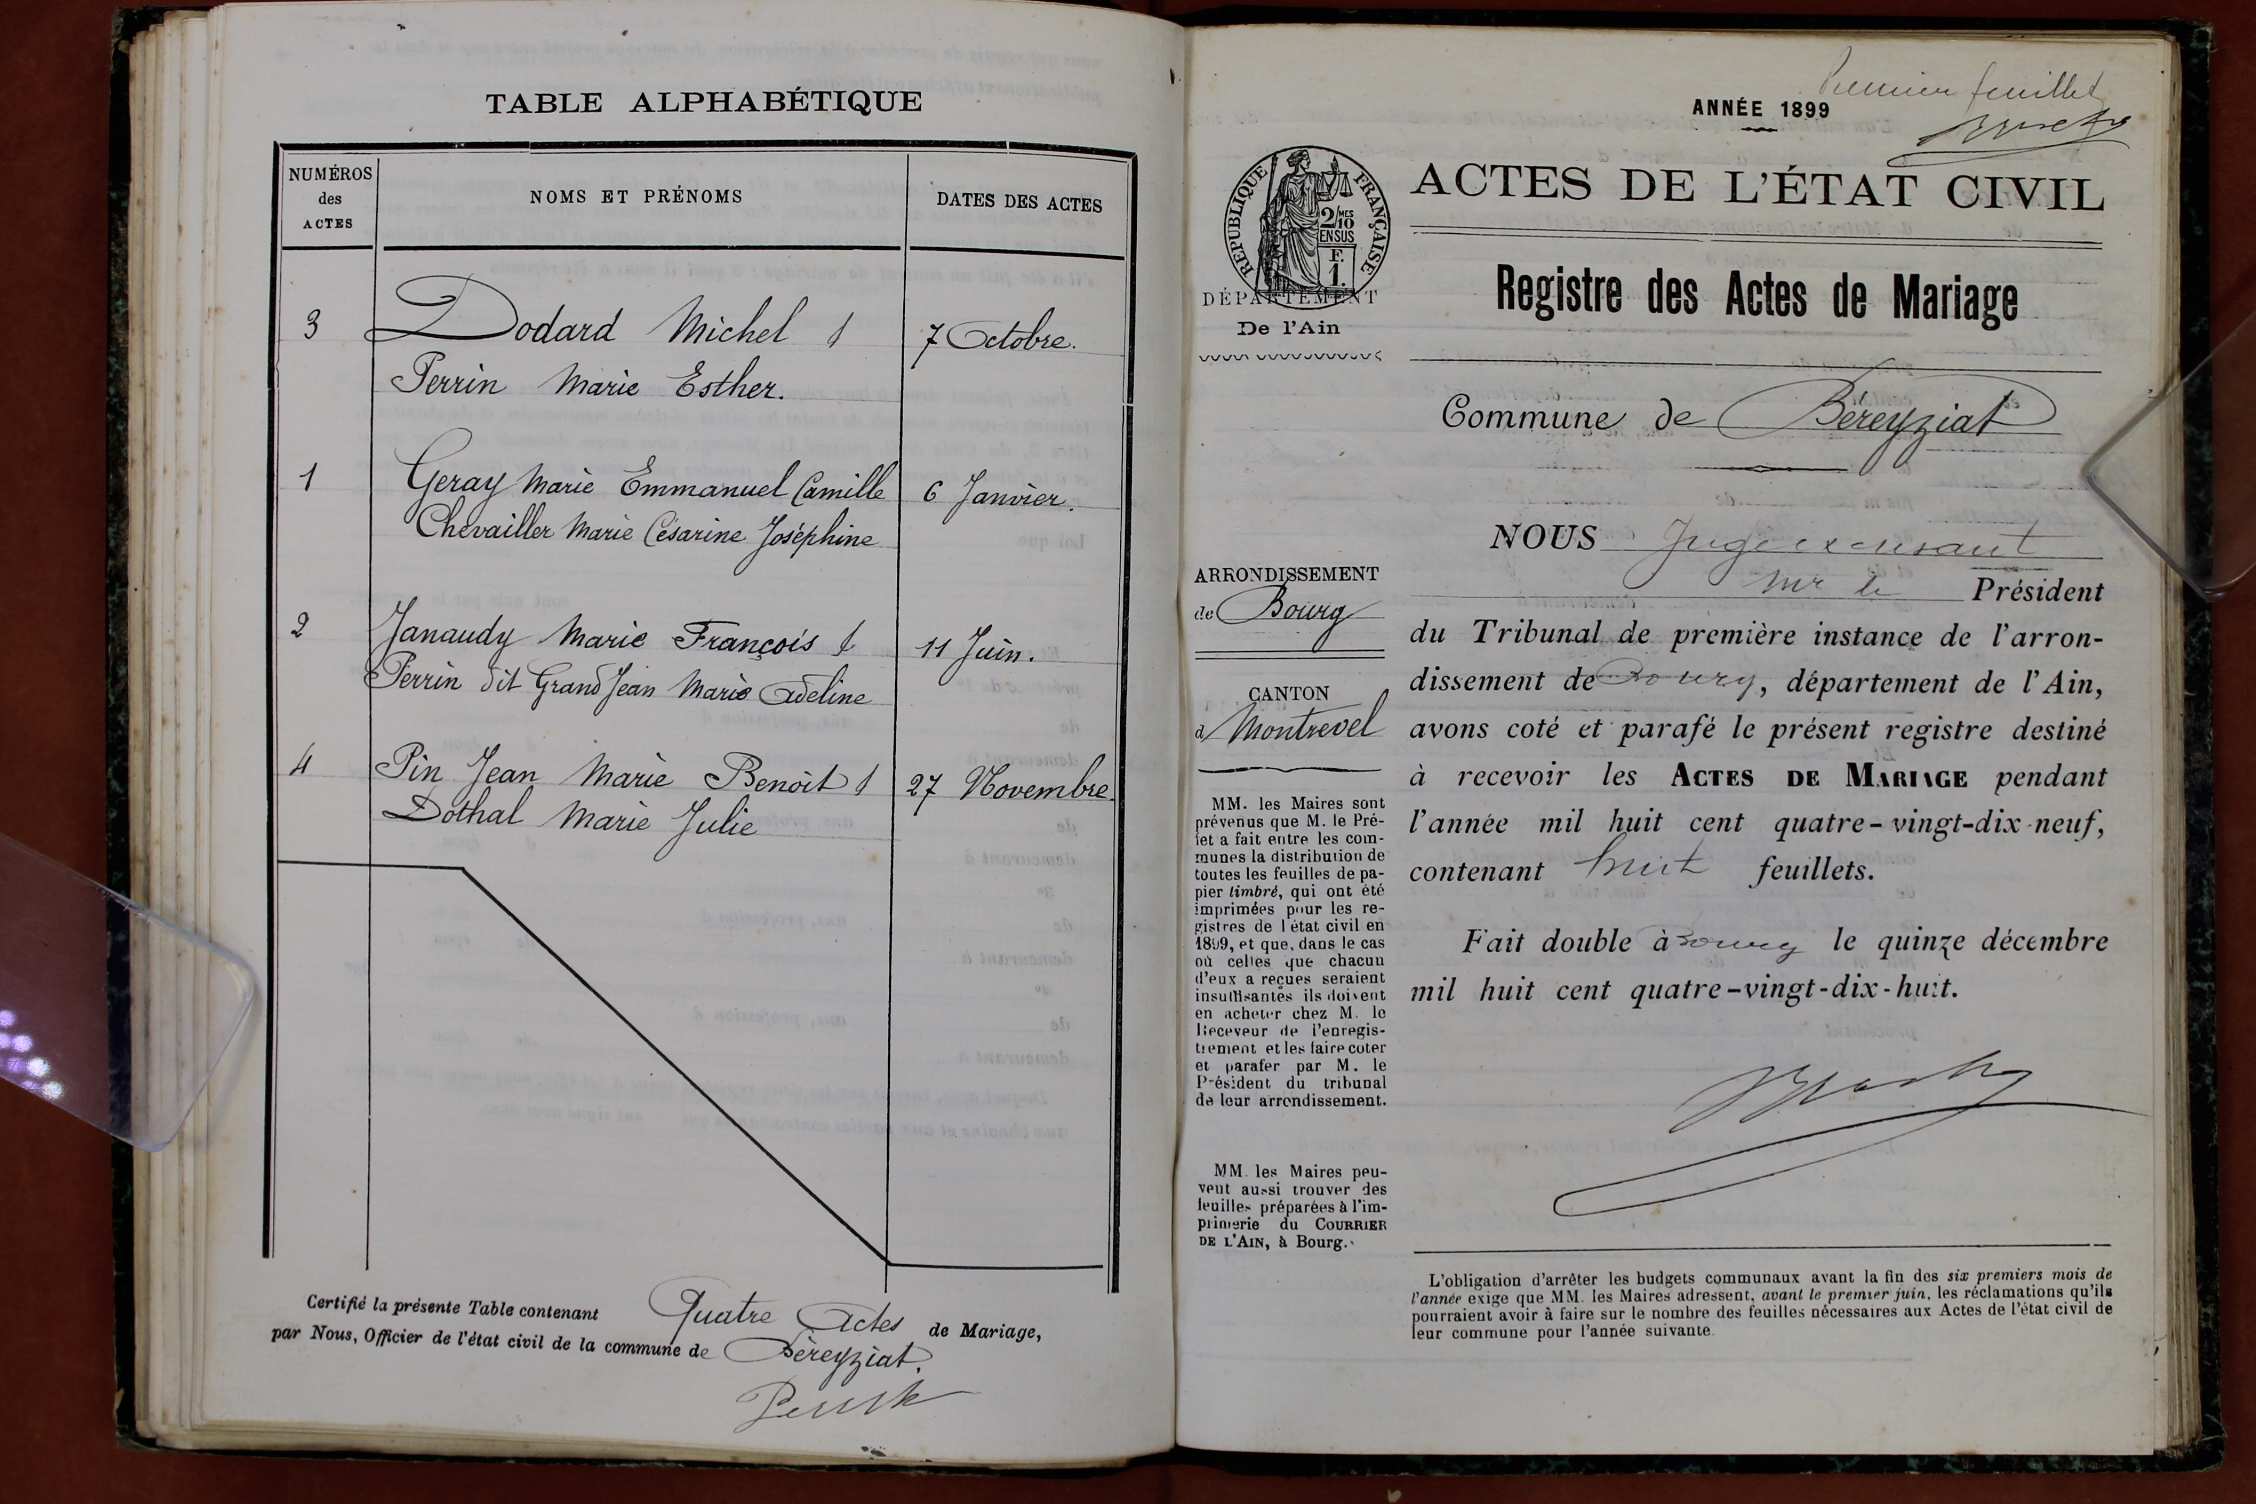 TABLE ALPHABÉTIQUE
NUMÉROS
des
ACTES
NOMS ET PRÉNOMS
DATES DES ACTES
3 Dodard Michel & 7 Octobre.
Perrin Marie Esther.
1 Geray Marie Emmanuel Camille 6 Janvier.
Chevailler Marie Césarine Joséphine
2 Janaudy Marie François & 11 Juin.
Perrin dit Grand Jean Marie Adeline
4 Pin Jean Marie Benoit & 27 Novembre.
Dothal Marie Julie
Certifié la présente Table contenant Quatre Actes de Mariage,
par Nous, Officier de l'état civil de la commune de Béreyziat.
Premier feuillet
ANNÉE 1899
RÉPUBLIQUE FRANÇAISE
2/10 MES
EN SUS
F.
1.
DÉPARTEMENT
De l'Ain
ACTES DE L'ÉTAT CIVIL
Registre des Actes de Mariage
Commune de Béreyziat
ARRONDISSEMENT
de Bourg
CANTON
d Montrevel
MM. les Maires sont
prévenus que M. le Pré-
fet a fait entre les com-
munes la distribution de
toutes les feuilles de pa-
pier timbré, qui ont été
imprimées pour les re-
gistres de l'état civil en
1899, et que, dans le cas
où celles que chacun
d'eux a reçues seraient
insuffisantes ils doivent
en acheter chez M. le
Receveur de l'enregis-
trement et les faire coter
et parafer par M. le
Président du tribunal
de leur arrondissement.
MM. les Maires peu-
vent aussi trouver des
feuilles préparées à l'im-
primerie du COURRIER
DE L'AIN, à Bourg.
NOUS Juge excusant
Mr le Président
du Tribunal de première instance de l'arron-
dissement de Bourg, département de l'Ain,
avons coté et parafé le présent registre destiné
à recevoir les ACTES DE MARIAGE pendant
l'année mil huit cent quatre-vingt-dix-neuf,
contenant huit feuillets.
Fait double à Bourg le quinze décembre
mil huit cent quatre-vingt-dix-huit.
L'obligation d'arrêter les budgets communaux avant la fin des six premiers mois de
l'année exige que MM. les Maires adressent, avant le premier juin, les réclamations qu'ils
pourraient avoir à faire sur le nombre des feuilles nécessaires aux Actes de l'état civil de
leur commune pour l'année suivante.